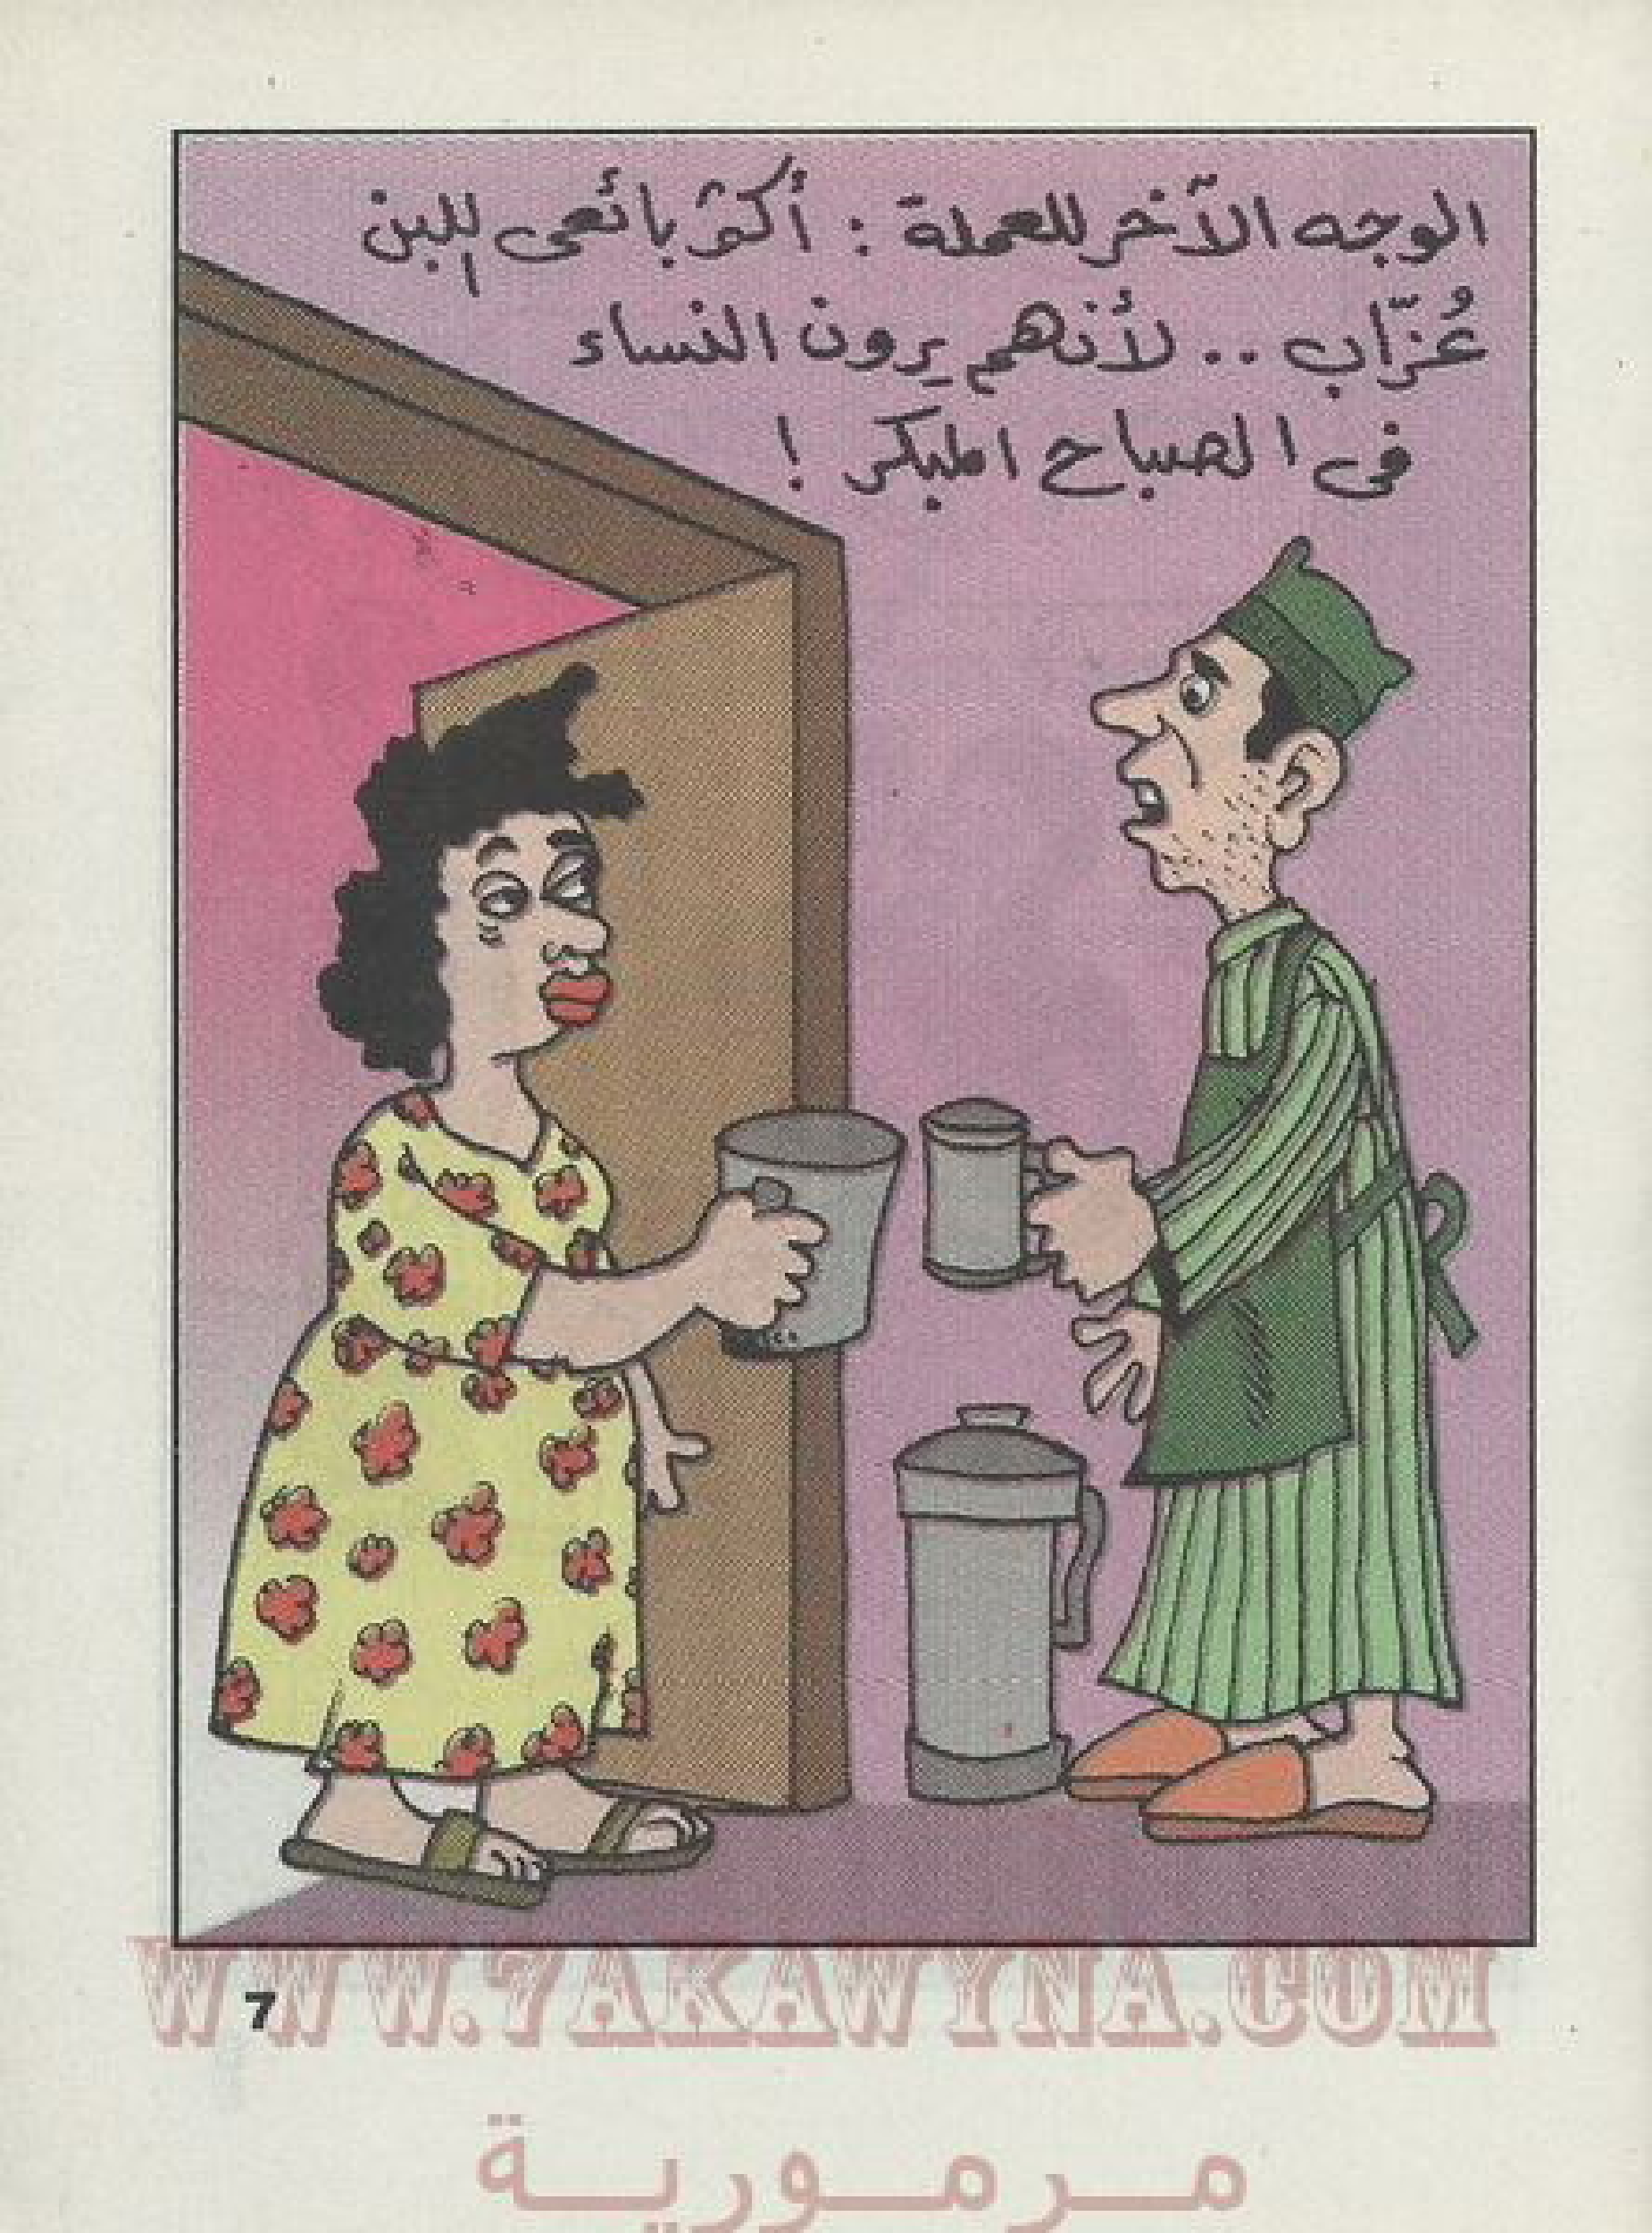 الوجه الآخر للعملة : أكثر بائعى اللبن
عُزّاب .. لأنهم يرون النساء
فى الصباح المبكر !
WWW.7AKAWYNA.COM
7
مرمورية